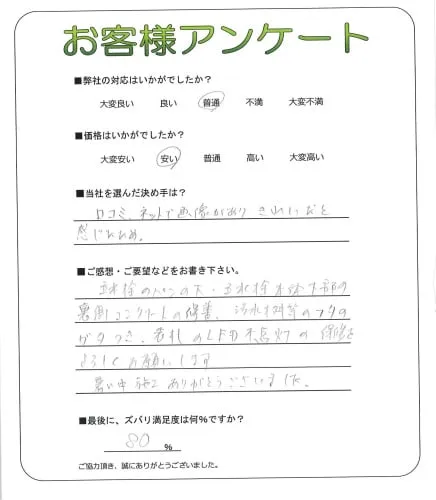 お客様アンケート
■弊社の対応はいかがでしたか?
大変良い 良い 普通 不満 大変不満
■価格はいかがでしたか?
大変安い 安い 普通 高い 大変高い
■当社を選んだ決め手は?
口コミ、ネットで画像があり きれいだと
感じたため。
■ご感想・ご要望などをお書き下さい。
立水栓の 立水栓 下部の
裏側コンクリートの補修、汚水 のフタの
ガタつき、表札のLED不点灯の 保修を
よろしくお願いします
暑い中施工ありがとうございました。
■最後に、ズバリ満足度は何%ですか?
80 %
ご協力頂き、誠にありがとうございました。